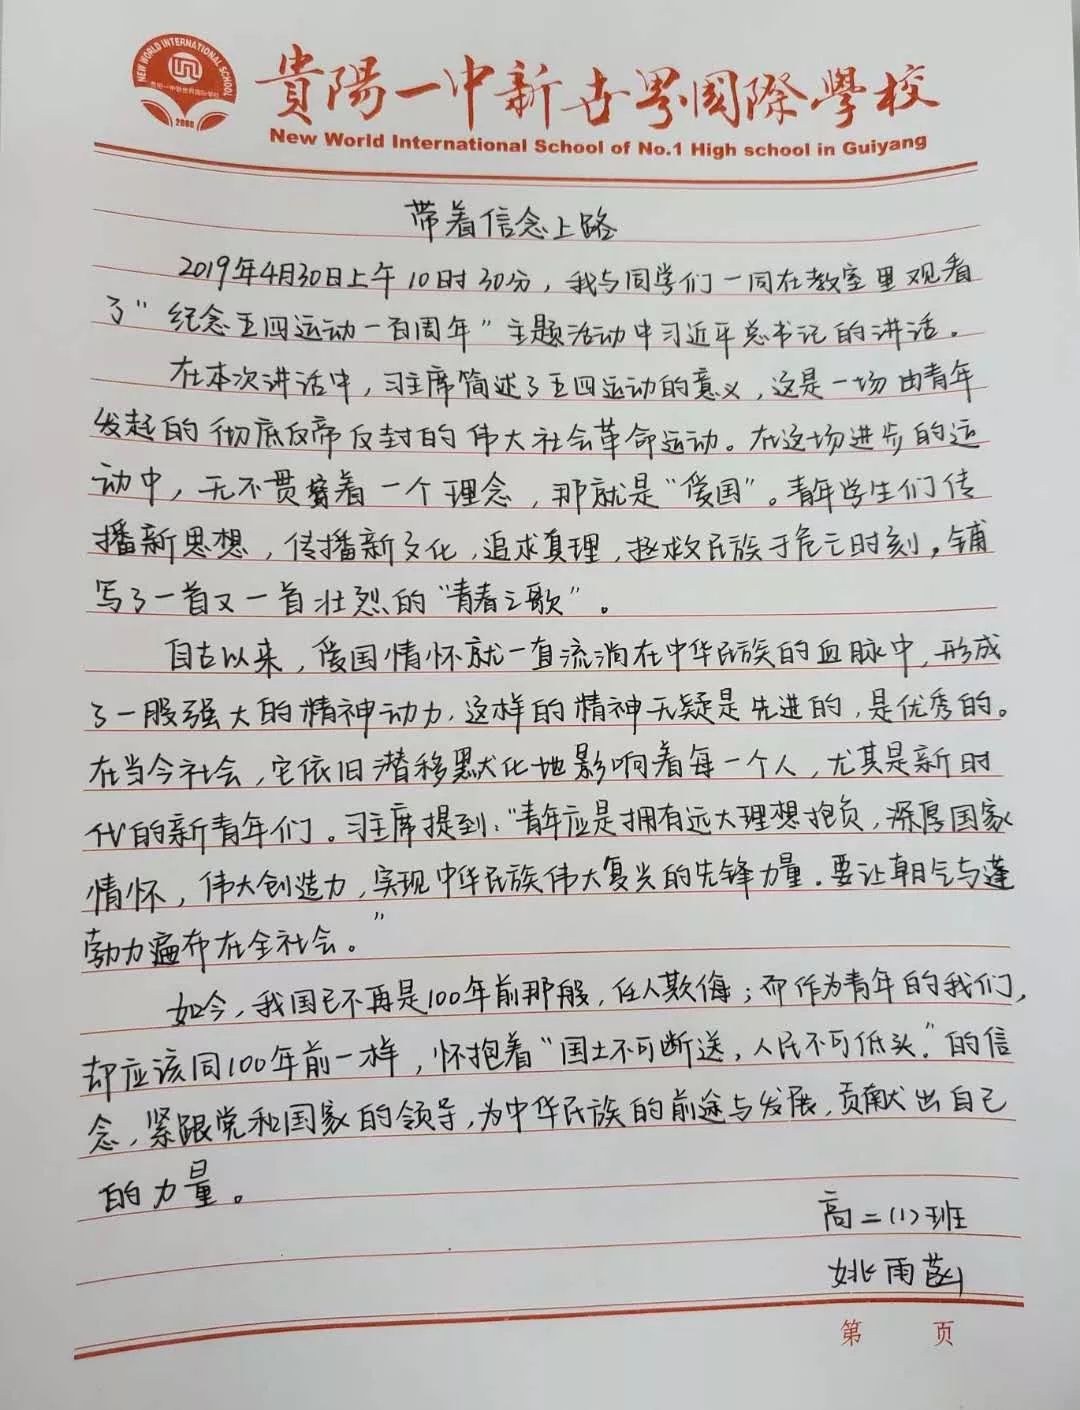 NEW WORLD INTERNATIONAL SCHOOL
貴陽一中新世界國際學校
2000
New World International School of No.1 High school in Guiyang
带着信念上路
2019年4月30日上午10时30分，我与同学们一同在教室里观看
了“纪念五四运动一百周年”主题活动中习近平总书记的讲话。
在本次讲话中，习主席简述了五四运动的意义，这是一场由青年
发起的彻底反帝反封的伟大社会革命运动。在这场进步的运
动中，无不贯穿着一个理念，那就是“爱国”。青年学生们传
播新思想，传播新文化，追求真理，拯救民族于危亡时刻，铺
写了一首又一首壮烈的“青春之歌”。
自古以来，爱国情怀就一直流淌在中华民族的血脉中，形成
了一股强大的精神动力，这样的精神无疑是先进的，是优秀的。
在当今社会，它依旧潜移默化地影响着每一个人，尤其是新时
代的新青年们。习主席提到：“青年应是拥有远大理想抱负，深厚国家
情怀，伟大创造力，实现中华民族伟大复兴的先锋力量。要让朝气与蓬
勃力遍布在全社会。”
如今，我国已不再是100年前那般，任人欺侮；而作为青年的我们，
却应该同100年前一样，怀抱着“国土不可断送，人民不可低头。”的信
念，紧跟党和国家的领导，为中华民族的前途与发展，贡献出自己
的力量。
高二(1)班
姚雨菡
第 页